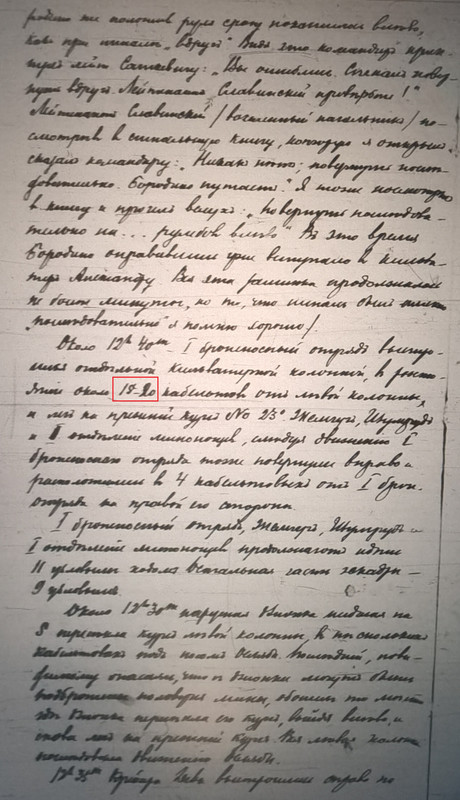 руля сразу
как при сигнале „вдруг“. Видя это командир крик-
нул лейт. „Вы ошиблись. Сигнал пове-
рнуть вдруг. Лейтенант Славинский проверьте!“
Лейтенант Славинский / вахтенный начальник / по-
смотрев в сигнальную книгу, которую я открыл,
сказал командиру: „Никак нет; повернуть после-
довательно. Бородино путает“. Я тоже посмотрел
в книгу и прочел вслух: „повернуть последова-
тельно на ... румбов влево“. В это время
Бородино оправившись уже вступало в кильва-
тер Александру. Вся эта продолжалась
не более минуты, но то, что сигнал был
„последовательно“ я помню хорошо /.
Около 12ч 40м I броненосный отряд
отдельной кильватерной колонной, в расс-
тоянии около 15-20 кабельтов от левой колонны,
и лег на прежний курс NO 23° Жемчуг, Изумруд
и I отделение миноносцев, следуя движению I
броненосного отряда тоже повернули вправо и
расположились в 4 кабельтовых от I брон.
отряда на правой его стороне.
I броненосный отряд, Жемчуг, Изумруд и
I отделение миноносцев продолжают идти
11 узловым ходом. Остальная часть эскадры —
9 узловым.
Около 12ч 30м парусная шхуна идущая на
S пересекла курс левой колонны, в нескольких
кабельтовах под носом Осляби. Последний, пови-
димому опасаясь, что с шхуны могут быть
набросаны мины, обошел то место
где шхуна пересекла его курс, выйдя влево, и
снова лег на прежний курс. Вся левая колон.
последовала движению Осляби.
12ч 35м справа по